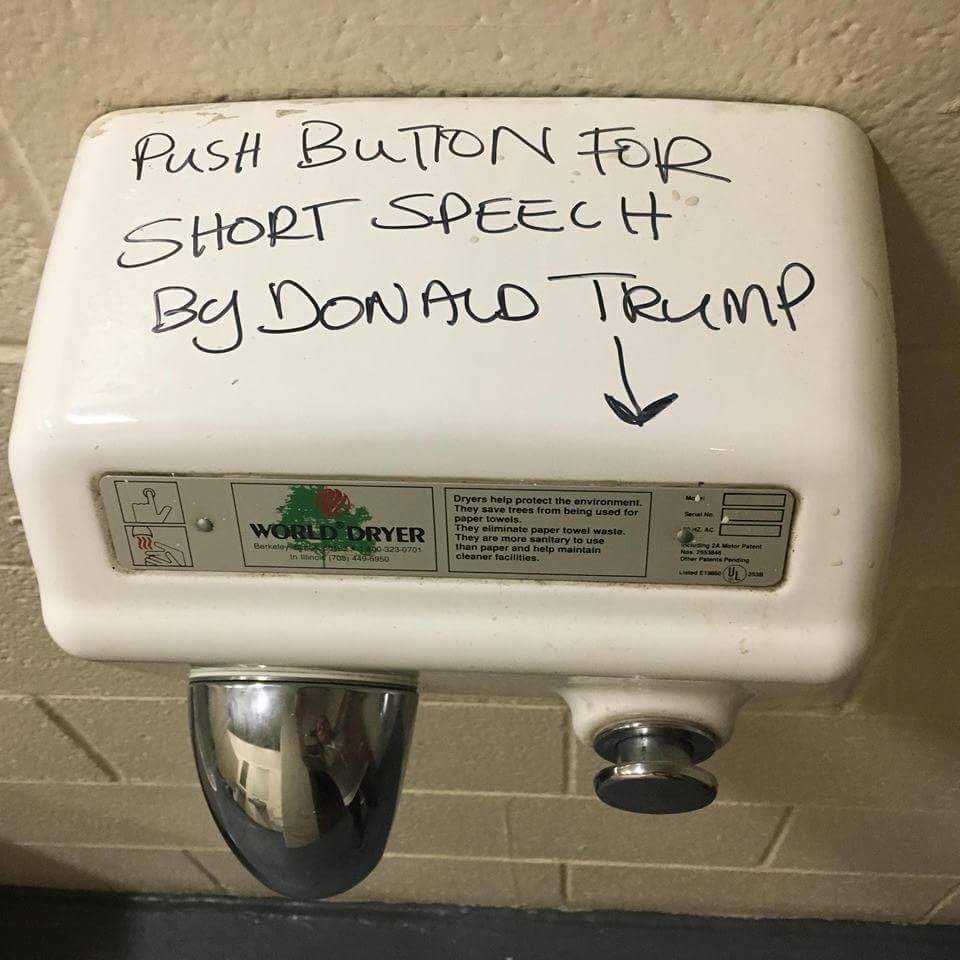 PUSH BUTTON FOR
SHORT SPEECH
By DONALD TRUMP
WORLD DRYER
Berkeley
00-323-0701
In Illinois (708) 449-6950
Dryers help protect the environment.
They save trees from being used for
paper towels.
They eliminate paper towel waste.
They are more sanitary to use
than paper and help maintain
cleaner facilities.
Serial No.
HZ. AC
Including 2A Motor Patent
Nos. 2553846
Other Patents Pending
Listed
UL
253B